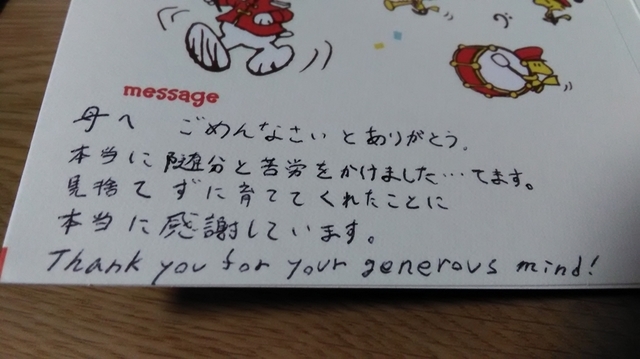 message
母へ ごめんなさいとありがとう。
本当に随分と苦労をかけました…てます。
見捨てずに育ててくれたことに
本当に感謝しています。
Thank you for your generous mind!